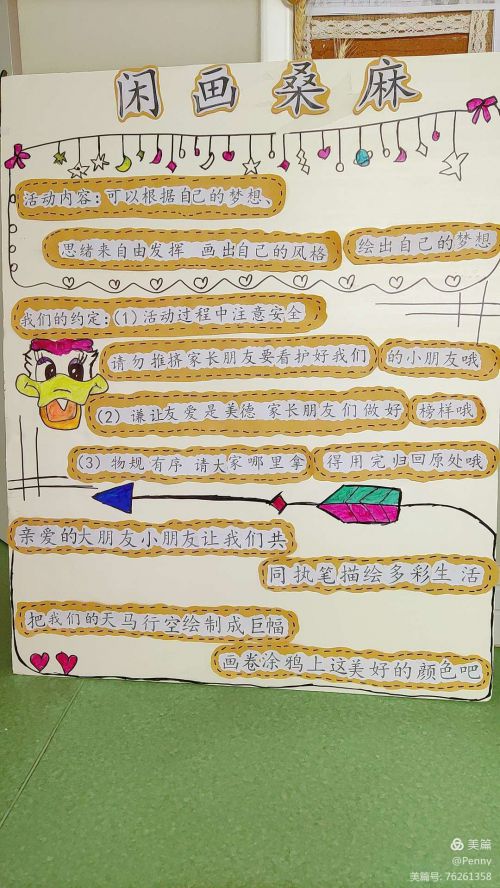 闲画桑麻
活动内容：可以根据自己的梦想、
思绪来自由发挥 画出自己的风格 绘出自己的梦想
我们的约定：(1)活动过程中注意安全
请勿推挤家长朋友要看护好我们 的小朋友哦
(2) 谦让友爱是美德 家长朋友们做好 榜样哦
(3) 物规有序 请大家哪里拿 得用完归回原处哦
亲爱的大朋友小朋友让我们共
同执笔描绘多彩生活
把我们的天马行空绘制成巨幅
画卷涂鸦上这美好的颜色吧
美篇
@Penny
美篇号: 76261358